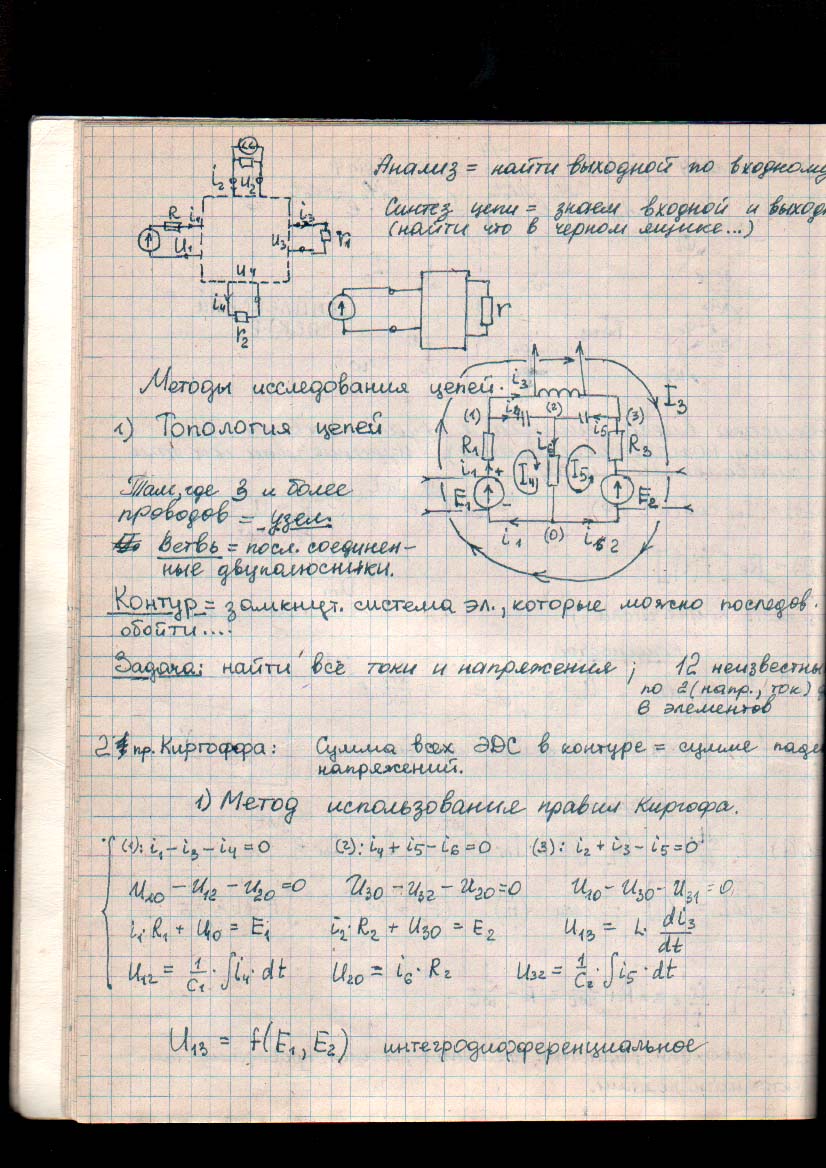 Анализ = найти выходной по входному
Синтез цепи = знаем входной и выходн
(найти что в черном ящике...)
i₂ U₂
R i₁ U₁
i₃ U₃ r₁
U₄ i₄ r₂
r
Методы исследования цепей.
1) Топология цепей
i₃ I₃
(1) i₄ (2) (3) i₅
R₁ i₁ + i₆ R₃
I₄ I₅
E₁ - E₂
i₁ (0) i₂
Там, где 3 и более
проводов = узел.
Ветвь = посл. соединен-
ные двуполюсники.
Контур = замкнут. система эл., которые можно последов.
обойти....
Задача: найти все токи и напряжения; 12 неизвестны
по 2 (напр., ток)
6 элементов
2 пр. Киргофора: Сумма всех ЭДС в контуре = сумме паде
напряжений.
1) Метод использования правил Киргофа.
(1): i₁ - i₃ - i₄ = 0 (2): i₄ + i₅ - i₆ = 0 (3): i₂ + i₃ - i₅ = 0
U₁₀ - U₁₂ - U₂₀ = 0 U₃₀ - U₃₂ - U₂₀ = 0 U₁₀ - U₃₀ - U₃₁ = 0
i₁ · R₁ + U₁₀ = E₁ i₂ · R₂ + U₃₀ = E₂ U₁₃ = L · di₃/dt
U₁₂ = 1/C₁ · ∫ i₄ · dt U₂₀ = i₆ · R₂ U₃₂ = 1/C₂ · ∫ i₅ · dt
U₁₃ = f(E₁, E₂) интегродифференциальное